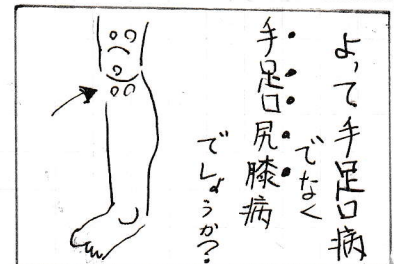 よって手足口病
でなく
手足口尻膝病
でしょうか?